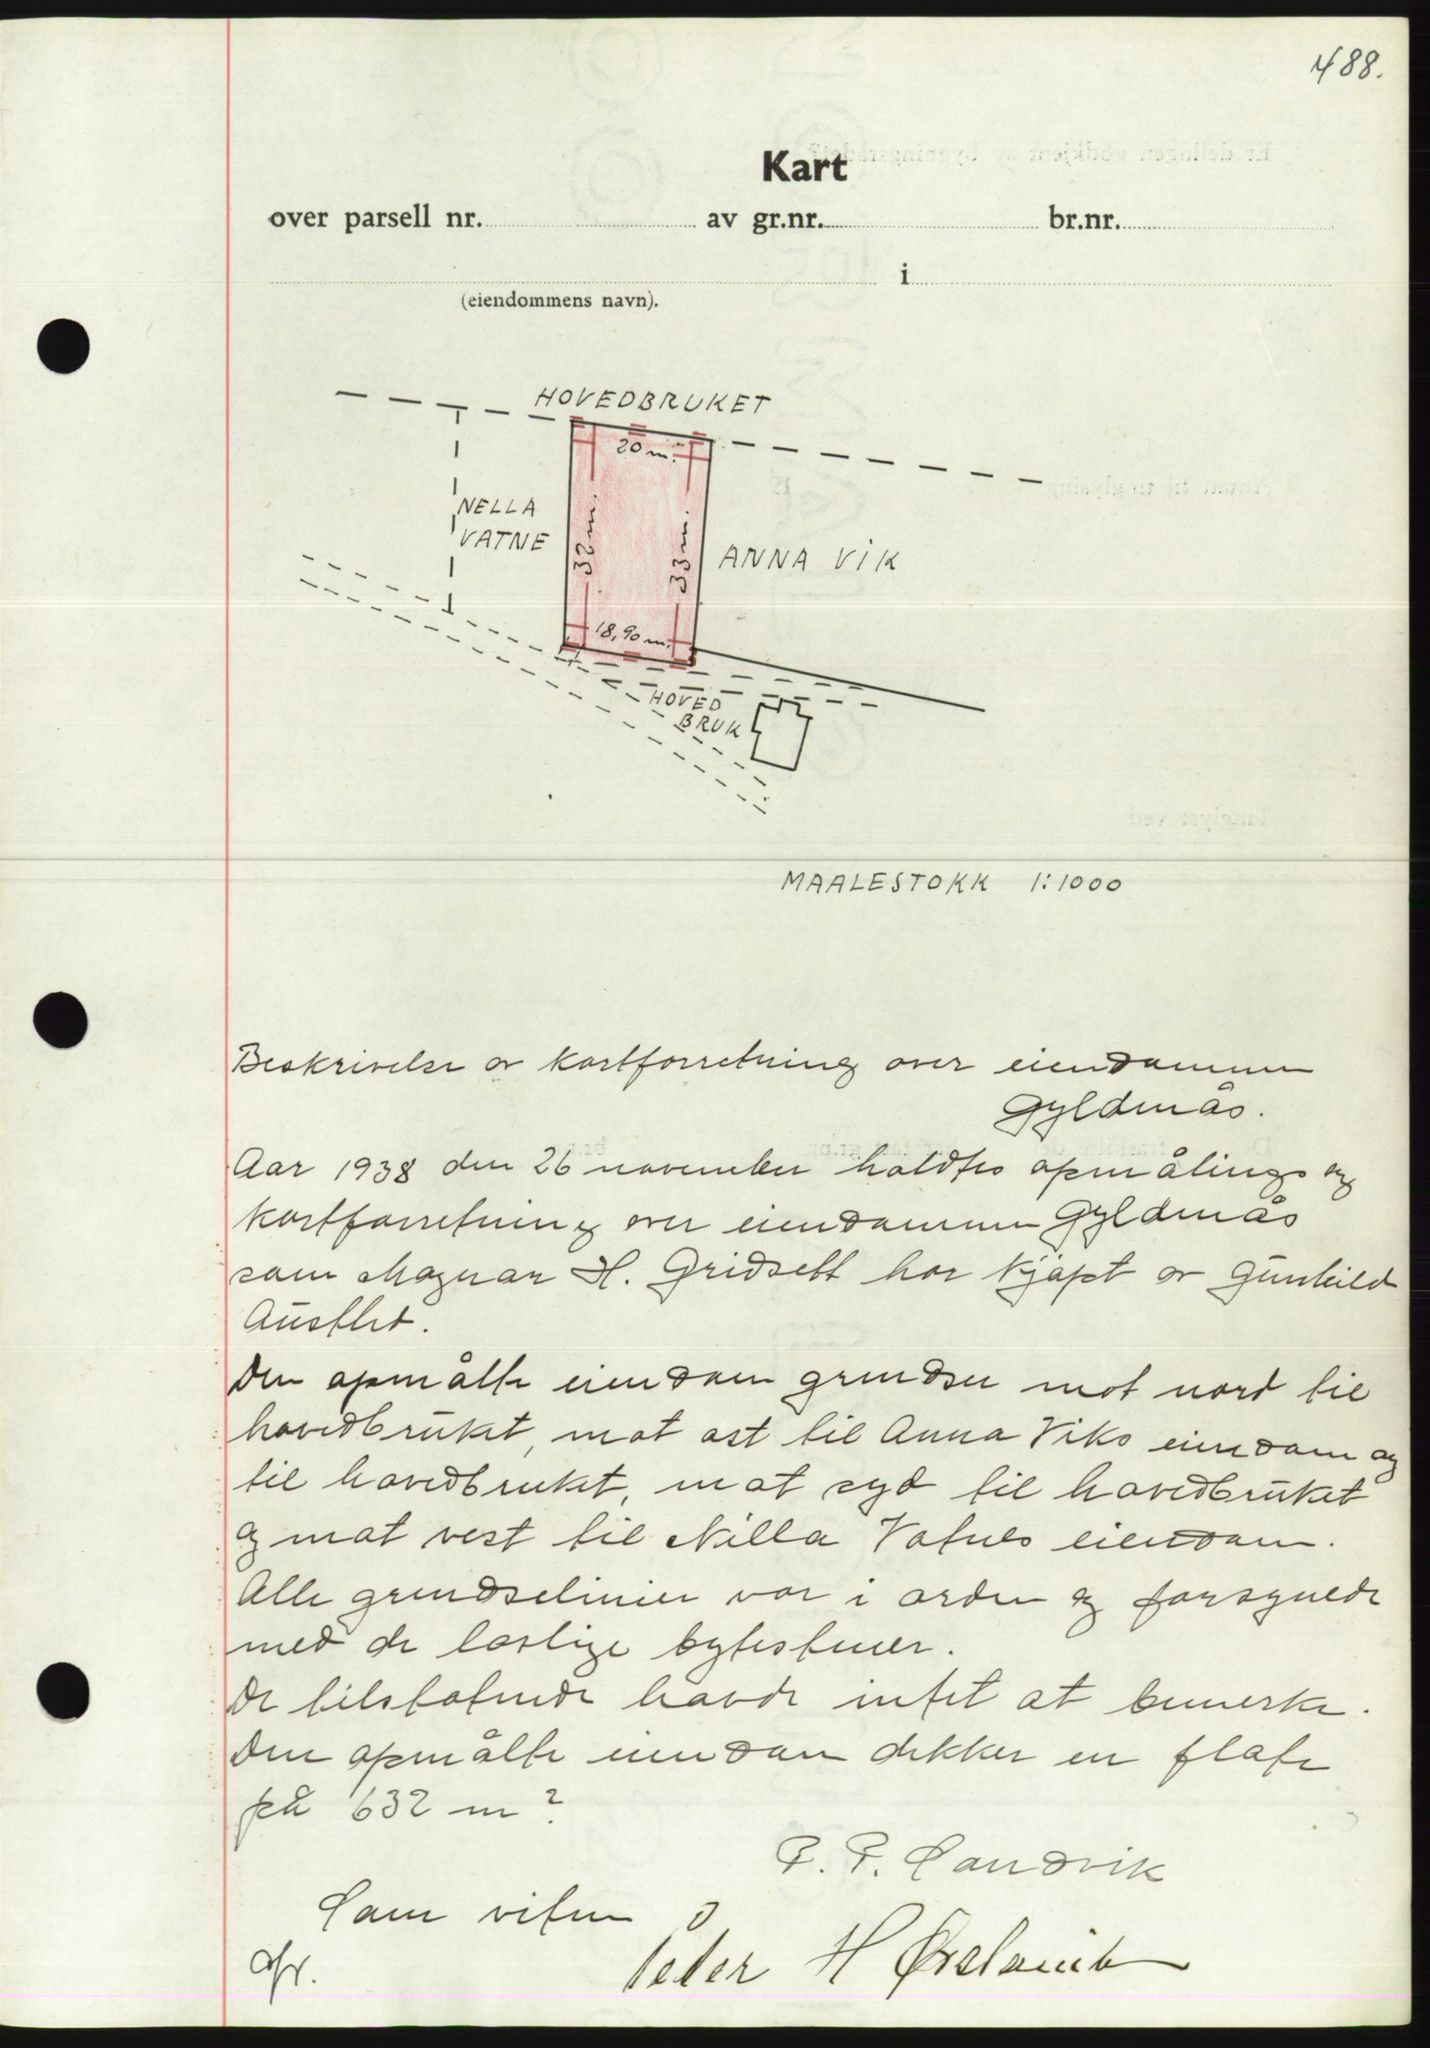 488.
Kart
over parsell nr. av gr.nr. br.nr.
i
(eiendommens navn).
HOVEDBRUKET
20 m.
NELLA
VATNE
32 m.
33 m.
ANNA VIK
18,90 m.
HOVED
BRUK
MAALESTOKK 1:1000
Beskrivelse av kartforretning over eiendommen
Gyldenås.
Aar 1938 den 26 november holdtes opmålings og
kartforretning over eiendommen Gyldenås
som Magnar H. Gridsett har kjøpt av Gunhild
Austlid.
Den opmålte eiendom grendser mot nord til
hovedbruket, mot øst til Anna Viks eiendom og
til hovedbruket, mot syd til hovedbruket
og mot vest til Nella Vatnes eiendom.
Alle grendselinier var i orden og forsynede
med de lovlige bytestener.
De tilstøtende havde intet at bemerke.
Den opmålte eiendom dekker en flate
på 632 m²
P. P. Landvik
Som vitne
Peder H